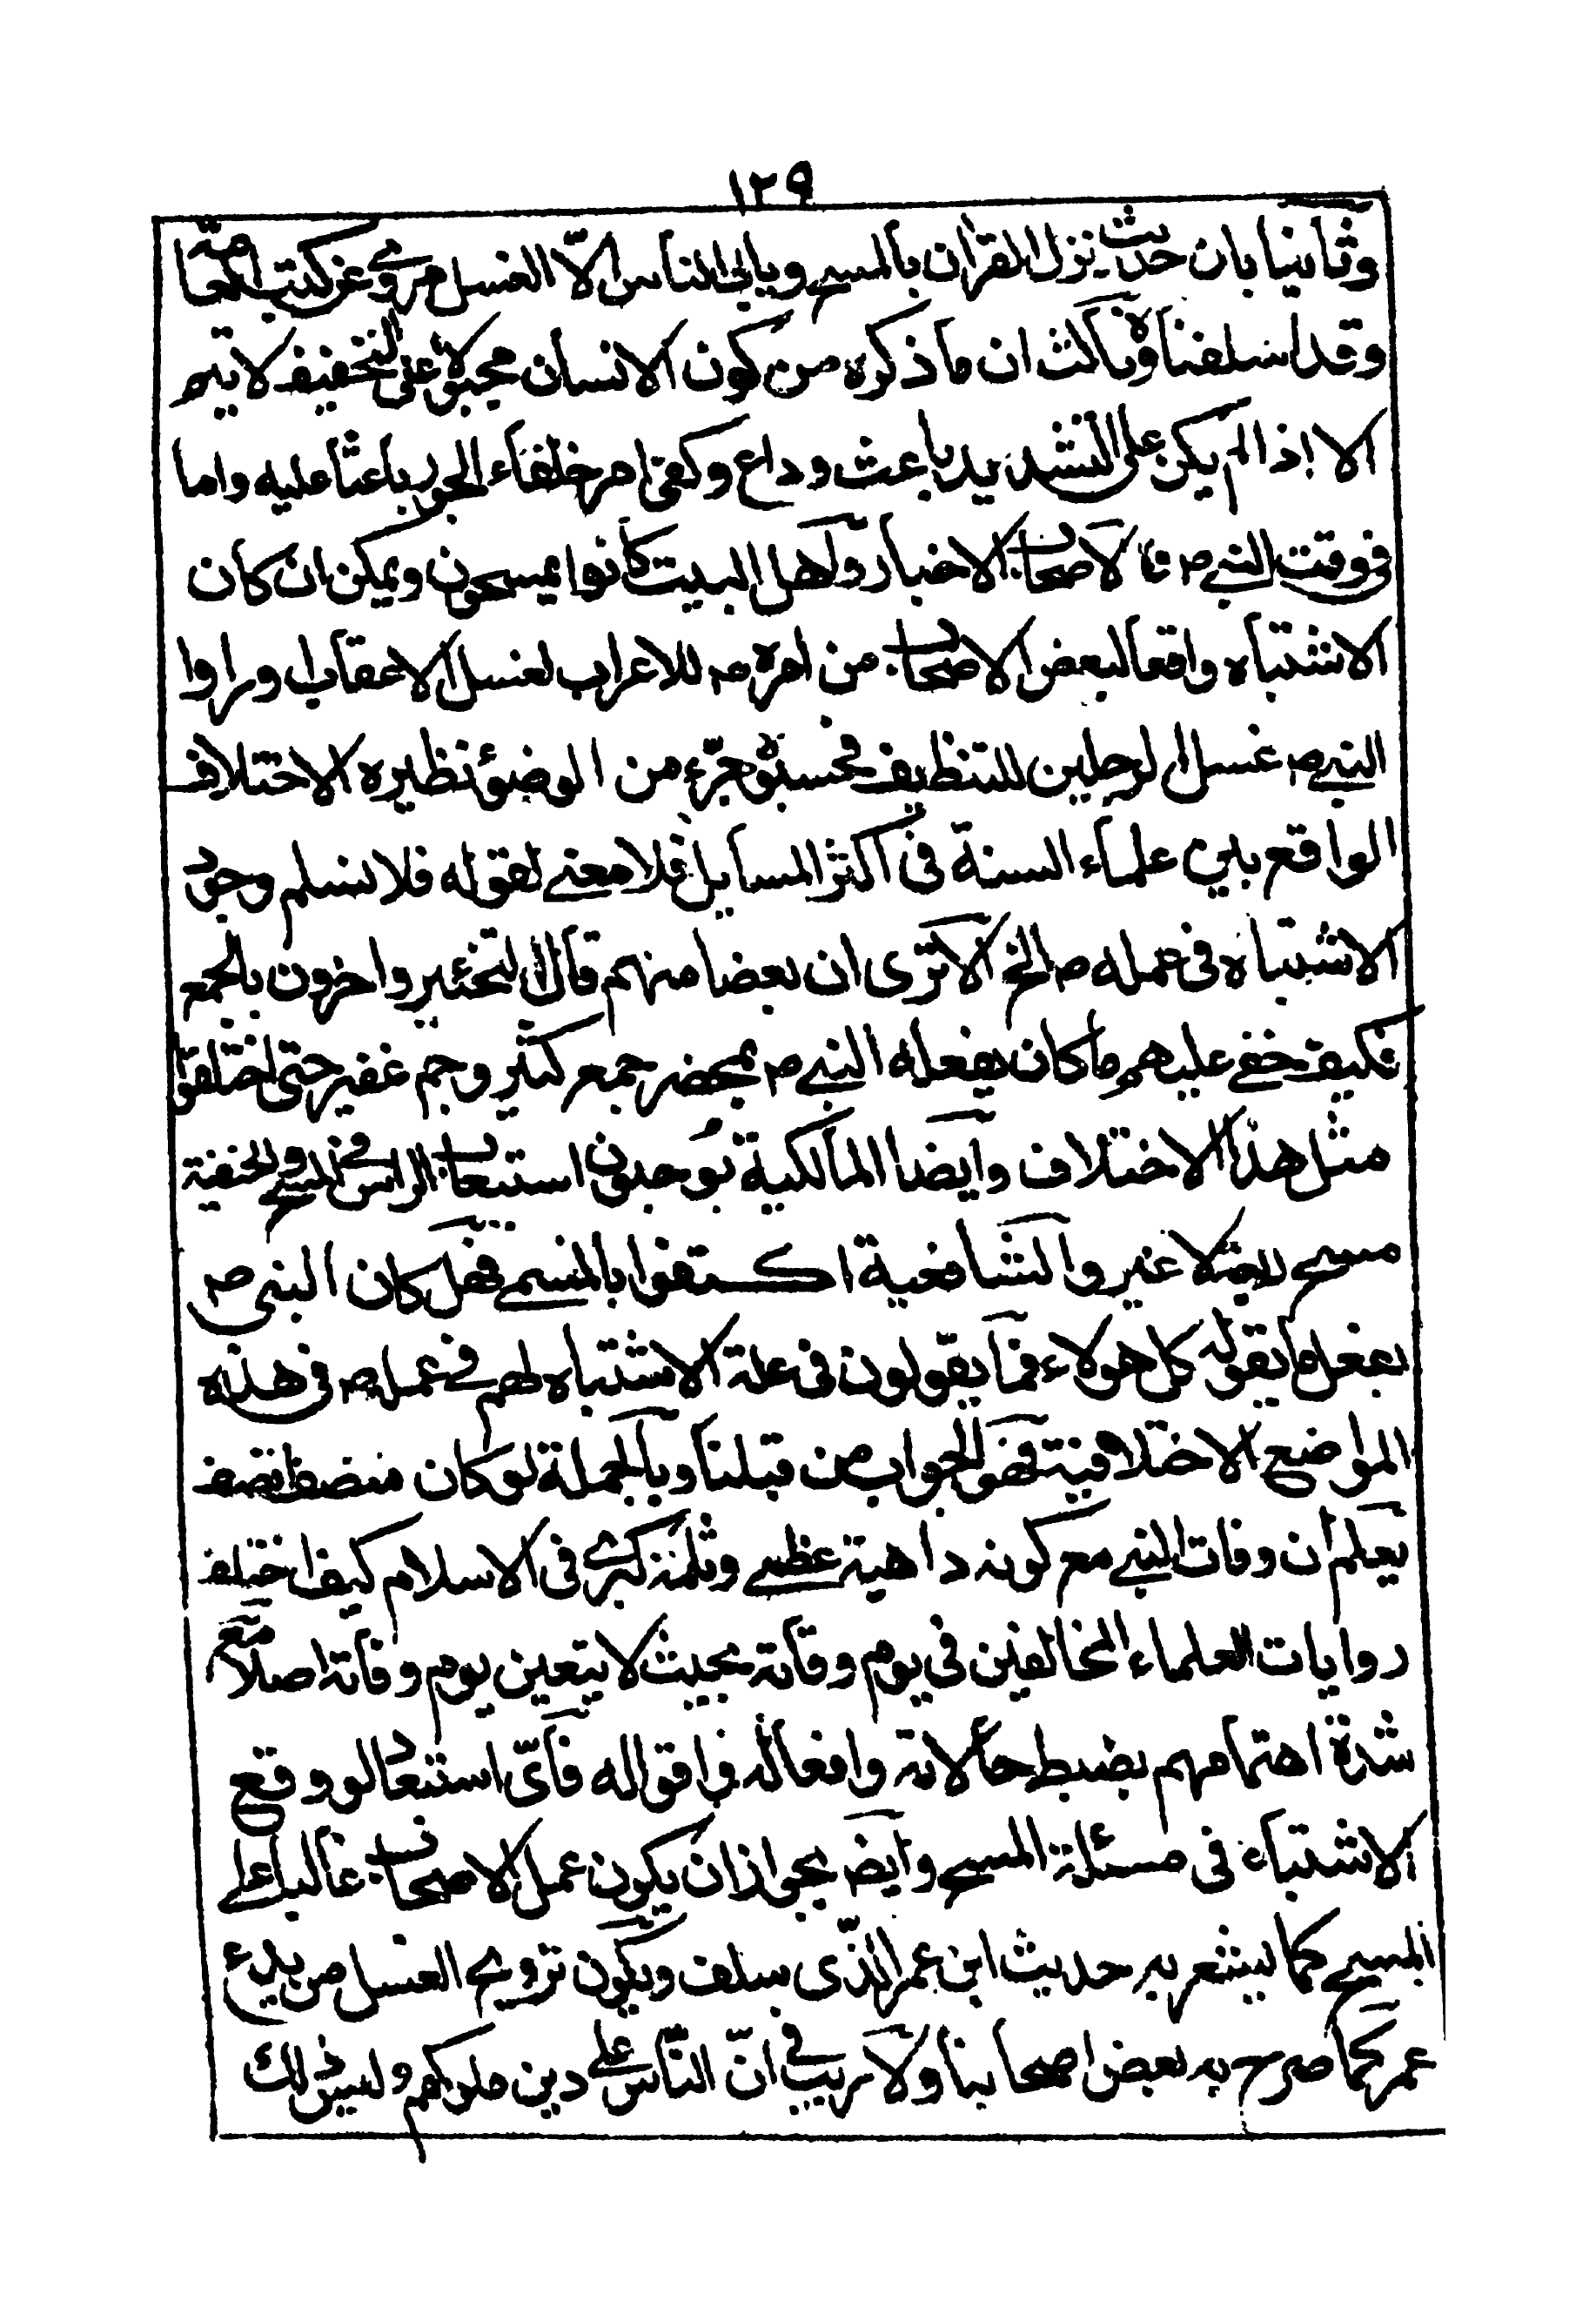 ١٢٩
وثانيا بان حديث نزل القران بالمسح ويابى الناس الّا الغسل مروى عن كتب العامة
وقد اسلفناه وثالث ان ما ذكره من كون الانسان مجبولا على التخفيف لا يتم
الا اذا لم يكن على التشديد باعث وداع وكفى امر خلفاء الجور باعثا عليه واما
فى وقت النبى ص فالاصحاب الاخيار واهل البيت كانوا يمسحون ويمكن ان كان
الاشتباه واقعا لبعض الاصحاب من امره ص للاعراب لغسل الاعقاب او راوا
النبى ص غسل الرجلين للتنظيف فحسبوه جزء من الوضؤ نظيره الاختلاف
الواقع بين علماء السنة فى اكثر المسايل فلا معنى لقوله فلا نسلم وجود
الاشتباه فى عمله ص الخ الا ترى ان بعضا منهم قال التخيير واخرون بالجمع
فكيف خفى عليهم ما كان يفعله النبى ص بمحضر جمع كثير وجم غفير حتى اختلفوا
مثل هذا الاختلاف وايضا المالكية يوجبون استيعاب الراس فى المسح والحنفية
مسح ربعه لا غير والشافعية اكتفوا بالمسح فهل كان النبى ص
يفعل ما يقوله كل هولاء فما يقولون فى علة الاشتباه لهم فى عمله ص فى هذه
المواضع الاختلافية فهو الجواب من قبلنا وبالجملة لو كان منصف نصف
يعلم ان وفات النبى مع كونه داهية عظمى وثلمة كبرى فى الاسلام كيف اختلف
روايات العلماء المخالفين فى يوم وفاته بحيث لا يتعين يوم وفاته اصلا مع
شدة اهتمامهم بضبط حالاته وافعاله واقواله فاىّ استبعاد لو وقع
الاشتباه فى مسئلة المسح وايض بجواز ان يكون عمل الاصحاب غالبا على
المسح كما يشعر به حديث ابن عمر الذّى سلف ويكون ترويج الغسل من بدع
عمر كما صرح به بعض اصحابنا ولا ريب فى انّ النّاس على دين ملوكهم وليس ذلك